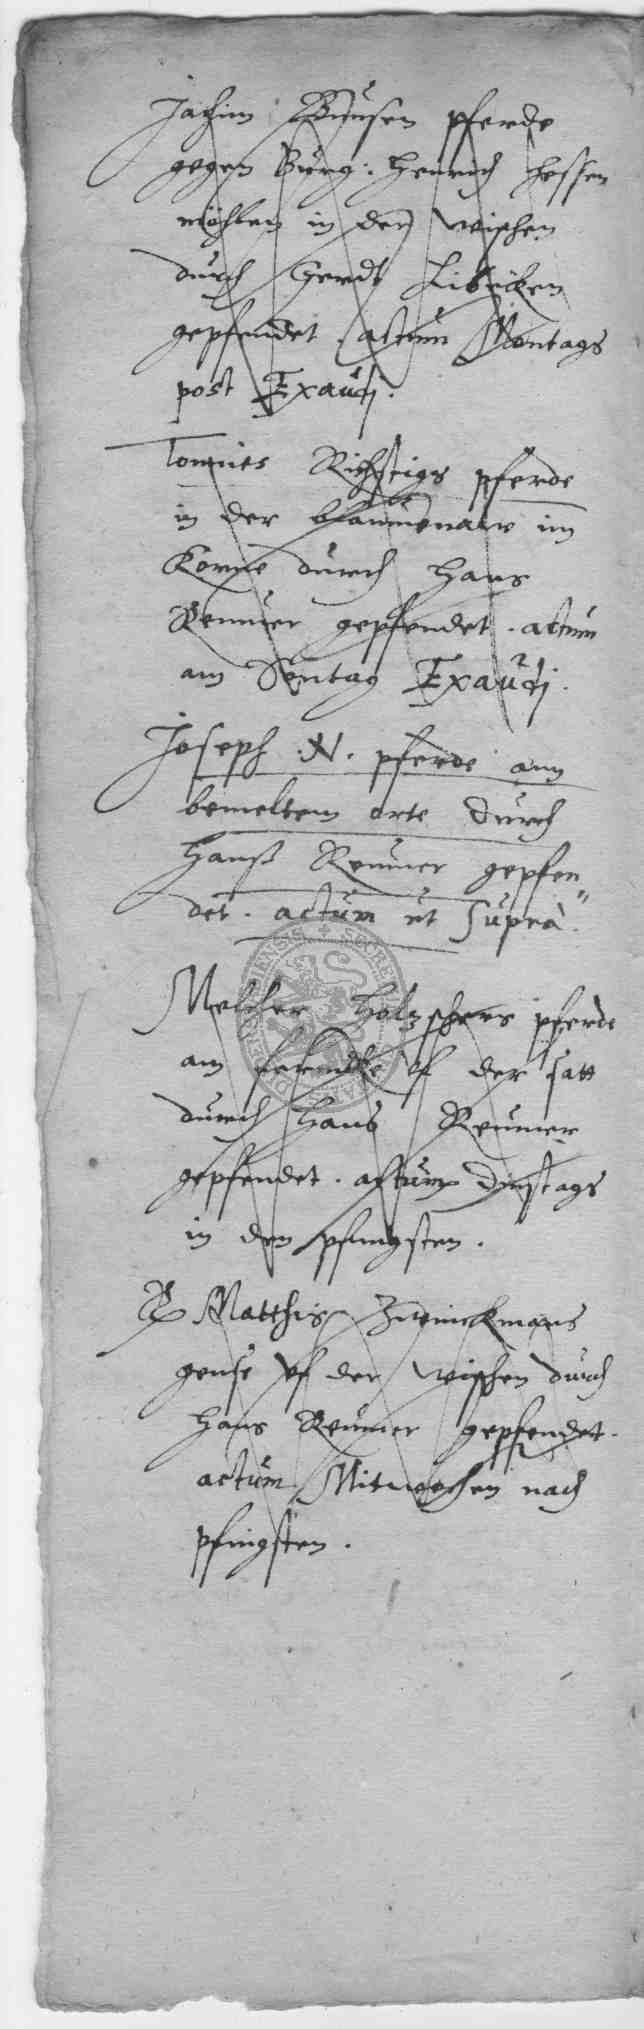 Jochim Bussen pferde
gegen Burg: Henrich Hessen
möhlen in der wischen
durch Gerdt Libeken
gepfendet. actum Montags
post Exaudi.
Tonnies Richstigs pferde
in der blaumenawe im
Korne durch Hans
Remmer gepfendet. actum
am Sontag Exaudi.
Joseph .N. pferde am
bemeltem orte durch
Hanß Remmer gepfen
det. actum ut supra.
Melcher Holzschers pferde
am uf der satt
durch Hans Remmer
gepfendet. actum Dinstags
in den pfingsten.
Matthis Zwenickmans
gense uf der wischen durch
Hans Remmer gepfendet.
actum Mitwochen nach
pfingsten.